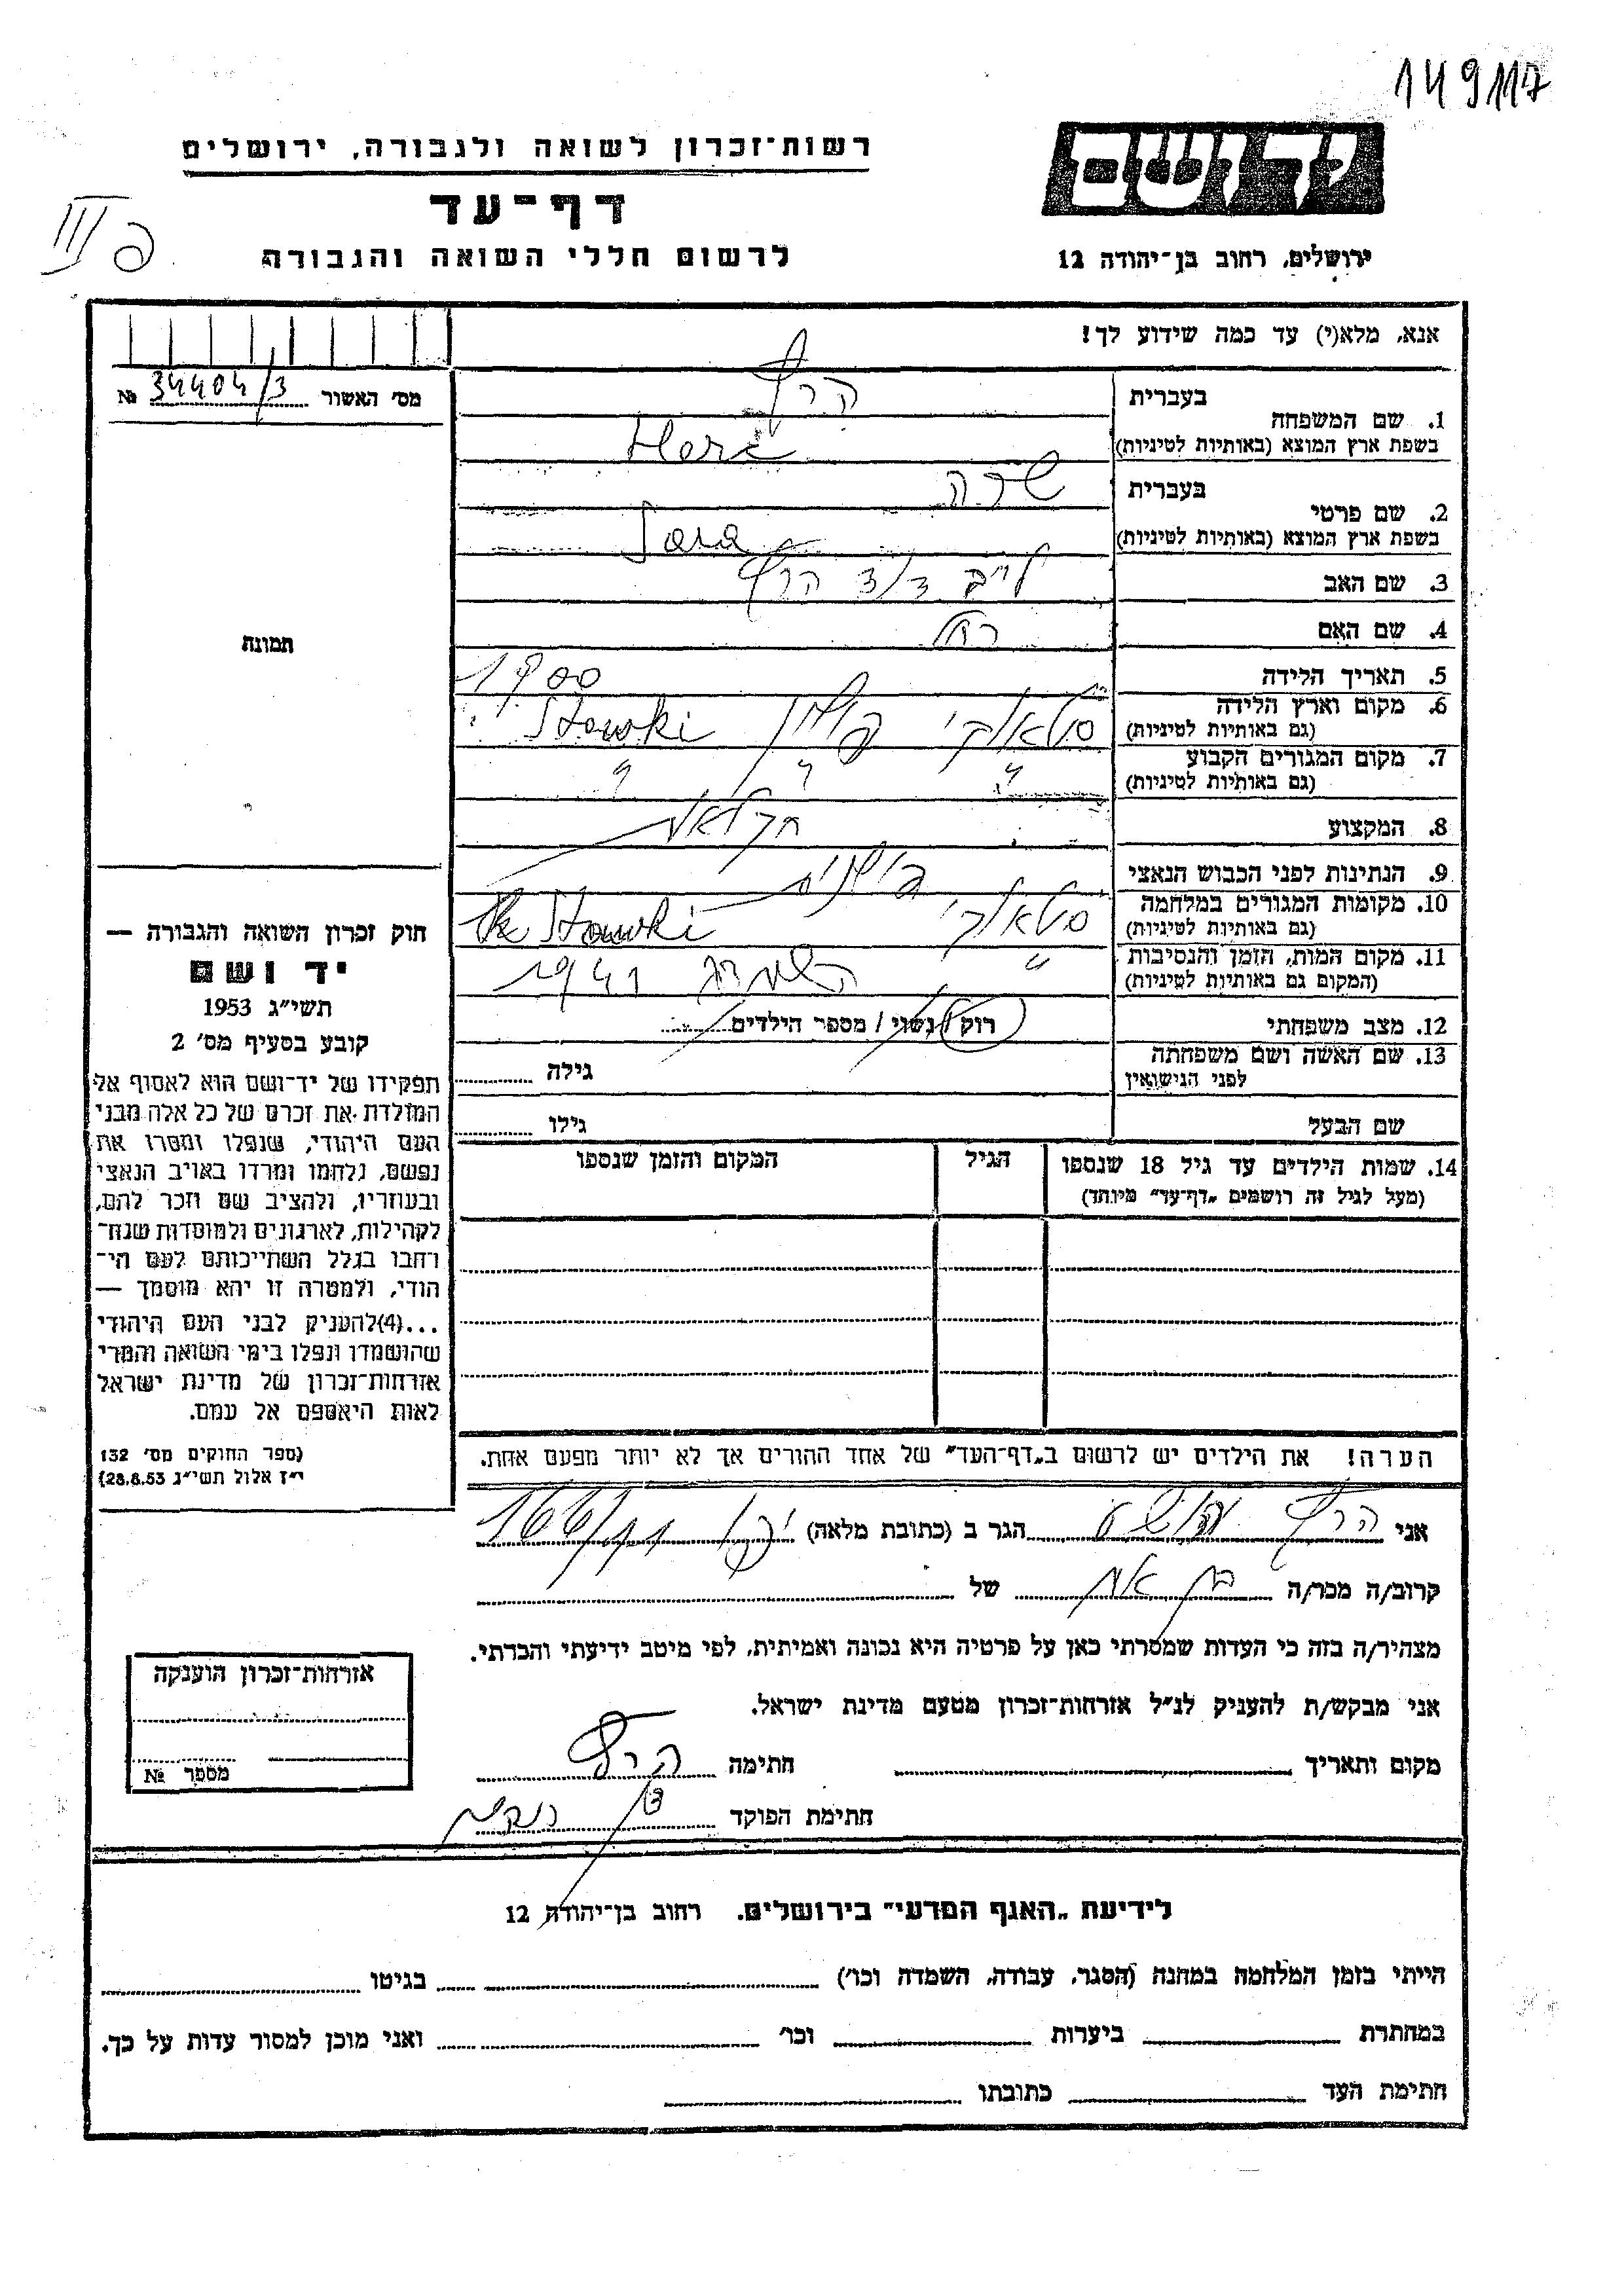 149117
רשות־זכרון לשואה ולגבורה, ירושלים
דף־עד
לרשום חללי השואה והגבורה
ידושם
ירושלים, רחוב בן־יהודה 12
III
אנא, מלא(י) עד כמה שידוע לך!
מס׳ האשור 34404/3 №
תמונה
1. שם המשפחה
בעברית
בשפת ארץ המוצא (באותיות לטיניות)
2. שם פרטי
בעברית שרה
בשפת ארץ המוצא (באותיות לטיניות) Sara
3. שם האב לייב
4. שם האם רחל
5. תאריך הלידה 1900
6. מקום וארץ הלידה
(גם באותיות לטיניות) פולין Stawki
7. מקום המגורים הקבוע
(גם באותיות לטיניות) " " "
8. המקצוע
9. הנתינות לפני הכבוש הנאצי פולנית
10. מקומות המגורים במלחמה
(גם באותיות לטיניות) Stawki
11. מקום המות, הזמן והנסיבות
(המקום גם באותיות לטיניות) " 1941
12. מצב משפחתי רוק / נשוי / מספר הילדים
13. שם האשה ושם משפחתה
לפני הנישואין
גילה
שם הבעל
גילו
14. שמות הילדים עד גיל 18 שנספו
(מעל לגיל זה רושמים „דף־עד״ מיוחד)
הגיל
המקום והזמן שנספו
חוק זכרון השואה והגבורה —
יד ושם
תשי״ג 1953
קובע בסעיף מס׳ 2
תפקידו של יד־ושם הוא לאסוף אל
המולדת את זכרם של כל אלה מבני
העם היהודי, שנפלו ומסרו את
נפשם, נלחמו ומרדו באויב הנאצי
ובעוזריו, ולהציב שם וזכר להם,
לקהילות, לארגונים ולמוסדות שנח־
רחבו בגלל השתייכותם לעם הי־
הודי, ולמטרה זו יהא מוסמך —
...(4)להעניק לבני העם היהודי
שהושמדו ונפלו בימי השואה והמרי
אזרחות־זכרון של מדינת ישראל
לאות היאספם אל עמם.
(ספר החוקים מס׳ 132
י״ז אלול תשי״ג 28.8.53)
הערה! את הילדים יש לרשום ב„דף־העד״ של אחד ההורים אך לא יותר מפעם אחת.
אני הגר ב (כתובת מלאה) 166/11
קרוב/ה מכר/ה בן אח של
מצהיר/ה בזה כי העדות שמסרתי כאן על פרטיה היא נכונה ואמיתית, לפי מיטב ידיעתי והכרתי.
אני מבקש/ת להעניק לנ״ל אזרחות־זכרון מטעם מדינת ישראל.
מקום ותאריך חתימה
חתימת הפוקד
אזרחות־זכרון הוענקה
מספר №
לידיעת „האגף המדעי״ בירושלים, רחוב בן־יהודה 12
הייתי בזמן המלחמה במחנה (הסגר, עבודה, השמדה וכו׳) בגיטו
במחתרת ביערות וכו׳ ואני מוכן למסור עדות על כך.
חתימת העד כתובתו